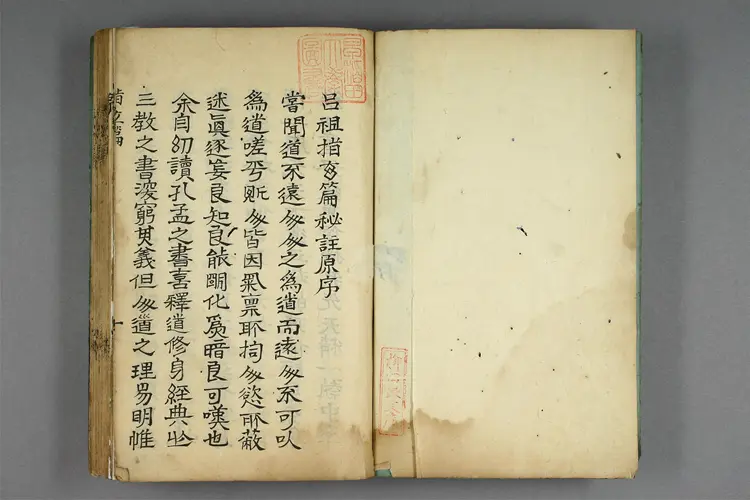 呂祖指玄篇秘註原序
嘗聞道不遠人人之為道而遠人不可以
為道嗟乎斯人皆因氣稟所拘人慾所蔽
迷真逐妄良知良能剛化為暗良可嘆也
余自幼讀孔孟之書喜釋道修身經典此
三教之書深窮其義但人道之理易明惟
指玄篇